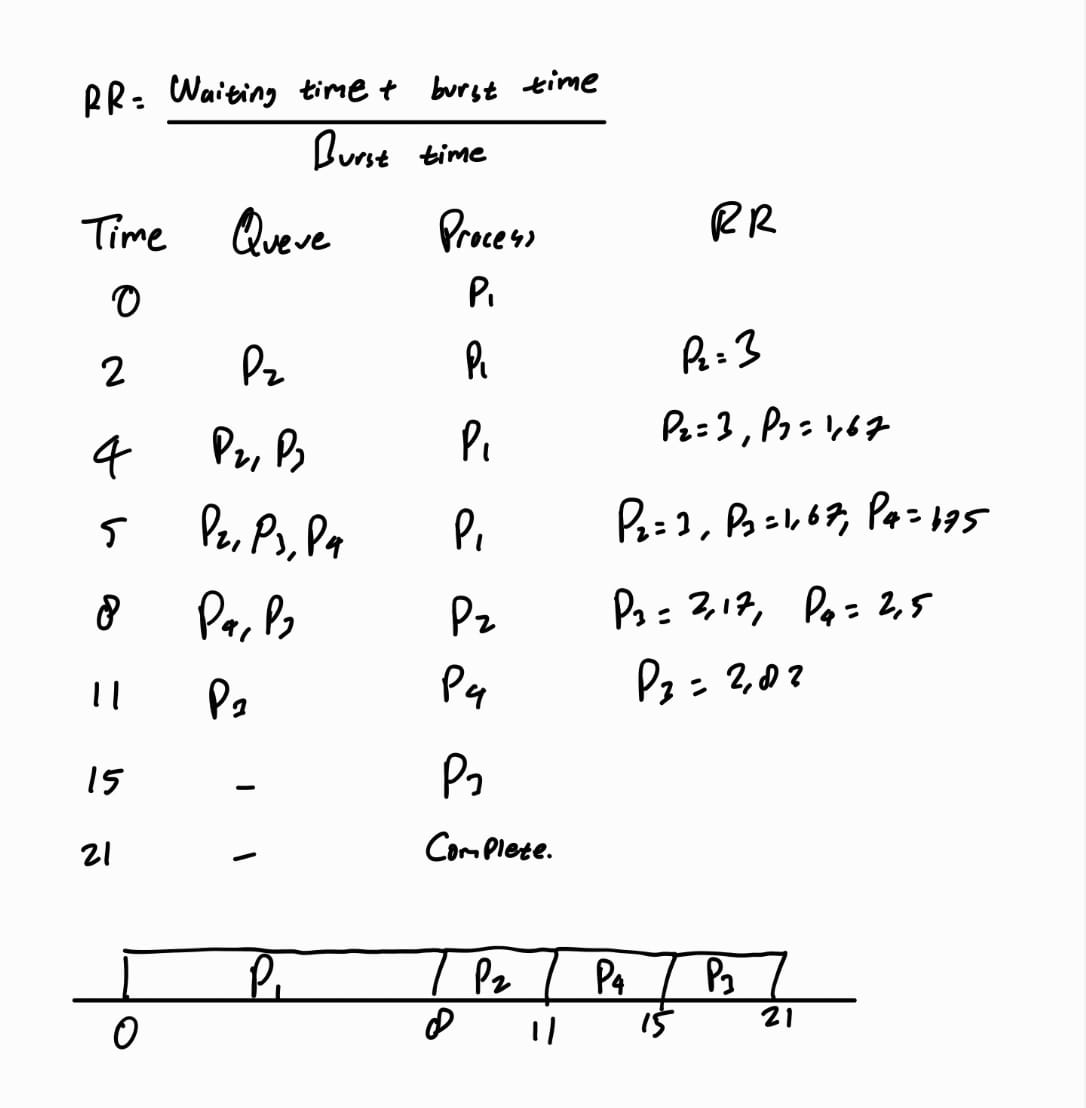 RR = Waiting time + burst time
Burst time
Time Queue Process RR
0 P1
2 P2 P1 P2 = 3
4 P2, P3 P1 P2 = 3, P3 = 1,67
5 P2, P3, P4 P1 P2 = 3, P3 = 1,67, P4 = 1,75
8 P4, P3 P2 P3 = 2,17, P4 = 2,5
11 P3 P4 P3 = 2,83
15 - P3
21 - Complete.
P1 P2 P4 P3
0 8 11 15 21